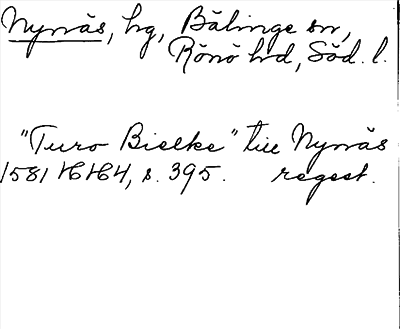 Nynäs, hg, Bälinge sn,
Rönö hd, Söd. l.
"Turo Bielke" till Nynäs
1581 16/4, s. 395. regest.